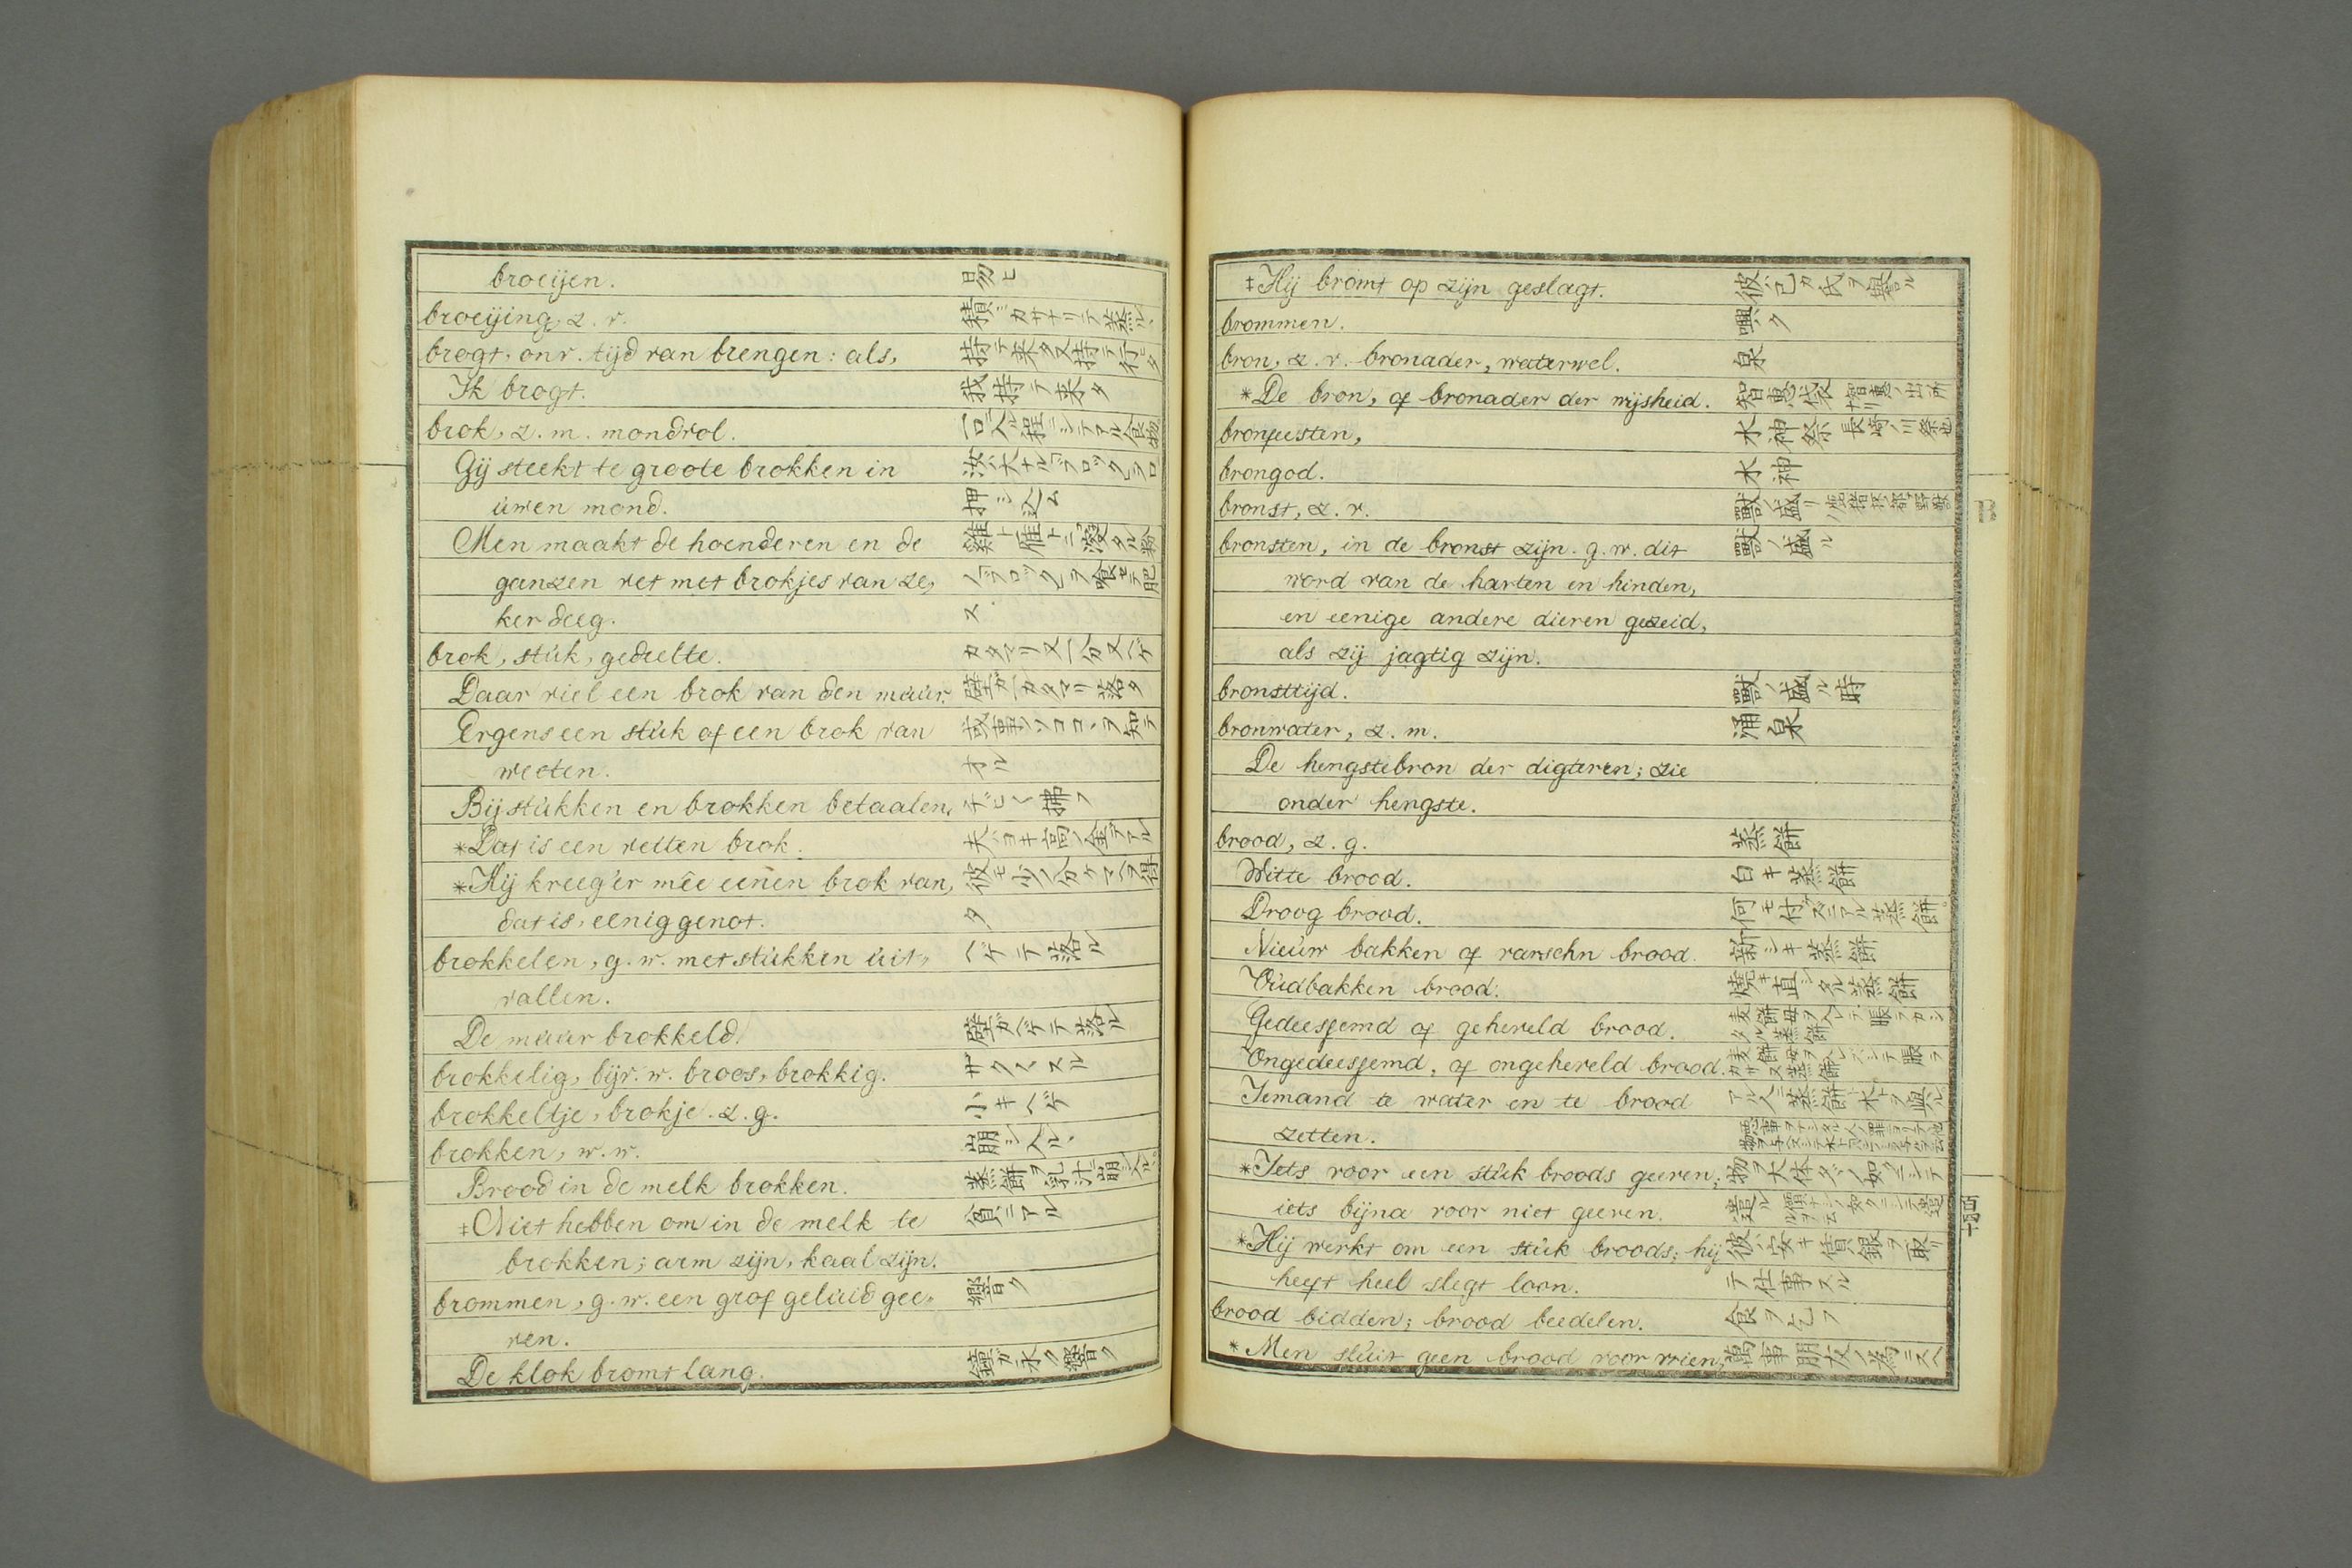 broeijen.
broeijing, z. v. 積ミカサナリテ蒸ル
brogt, onv. tijd van brengen: als, 持テ来タ又持テ行タ
Ik brogt. 我持テ来タ
brok, z. m. mondvol. 一口ニ入ル程ニシテアル食物
Gij steekt te groote brokken in
uwen mond. 押シ込ム
Men maakt de hoenderen en de
ganzen vet met brokjes van ze,
ker deeg. ス
brok, stuk, gedeelte.
Daar viel een brok van den muur. 壁ガ一カタマリ落タ
Ergens een stuk of een brok van
weeten. オル
Bij stukken en brokken betaalen. 拂フ
*Dat is een vetten brok.
*Hij kreeg'er mêe eenen brok van,
dat is, eenig genot. タ
brokkelen, g. w. met stukken uit, ヘゲテ落ル
vallen.
De muur brokkeld. 壁ガヘゲテ落ル
brokkelig, bijv. w. broos, brokkig.
brokkeltje, brokje. z. g. 小キヘゲ
brokken, w. w. 崩シ入ル
Brood in de melk brokken. 蒸餅ヲ乳汁ニ崩シ入ル
‡Niet hebben om in de melk te 貧ニアル
brokken; arm zijn, kaal zijn.
brommen, g. w. een grof geluid gee, 響ク
ven.
De klok bromt lang. 鐘ガ永ク響ク
‡Hij bromt op zijn geslagt. 彼ハ己カ氏ヲ譽ル
brommen.
bron, z. v. bronader, waterwel. 泉
*De bron, of bronader der wijsheid. 智惠袋 智惠ノ出所ナリ
bronfeesten, 水神祭 長崎ノ川祭也
brongod. 水神
bronst, z. v. 獸ノ盛リ
bronsten, in de bronst zijn. g. w. dit 獸ノ盛ル
word van de harten en hinden,
en eenige andere dieren gezeid,
als zij jagtig zijn.
bronsttijd. 獸ノ盛ル時
bronwater, z. m. 涌泉
De hengstebron der digteren; zie
onder hengste.
brood, z. g. 蒸餅
Witte brood. 白キ蒸餅
Droog brood. 何モ付ズニアル蒸餅
Nieuw bakken of varschn brood. 新シキ蒸餅
Oudbakken brood. 燒キ直シタル蒸餅
Gedeessemd of geheveld brood.
Ongedeessemd, of ongeheveld brood.
Iemand te water en te brood
zetten.
*Iets voor een stuk broods geeven; 物ヲ大体タダノ如クニシテ
iets bijna voor niet geeven. 遣ル
*Hij werkt om een stuk broods; hij 彼ハ安キ賃銀ヲ取リ
heeft heel slegt loon. テ仕事スル
brood bidden; brood beedelen. 食ヲ乞フ
*Men sluit geen brood voor vrien,
B
百四十